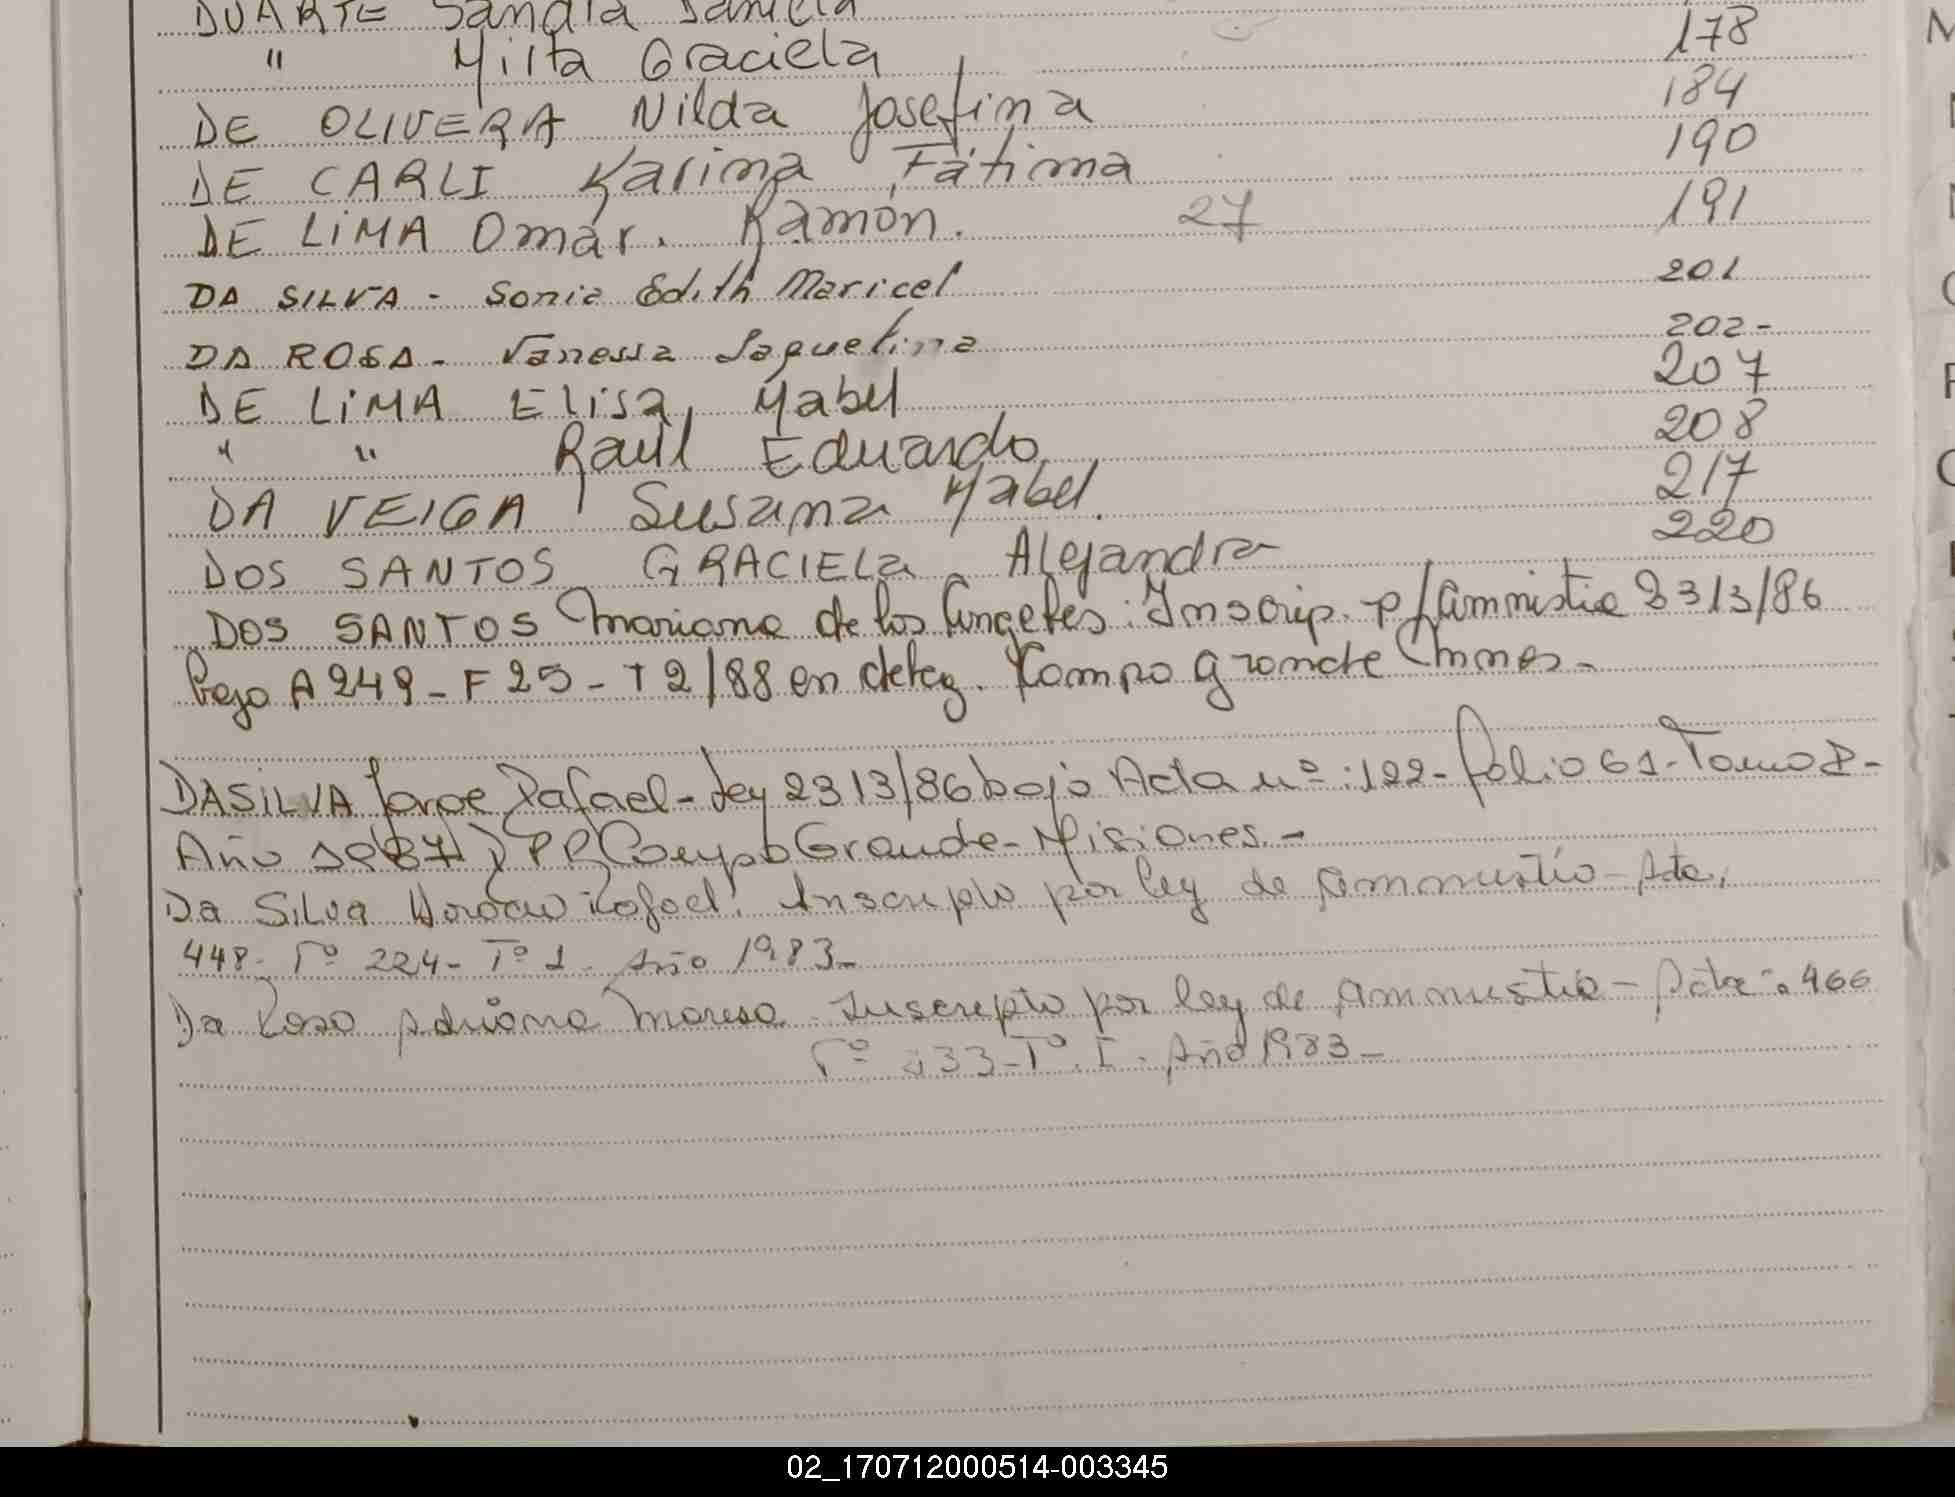 DUARTE Sandra Daniela
" Milta Graciela 178
DE OLIVERA Nilda Josefina 184
DE CARLI Karina Fátima 190
DE LiMA Omar. Ramón. 27 191
DA SILVA - Sonia Edith Maricel 201
DA ROSA - Vanessa Jaquelina 202-
DE LiMA Elisa Mabel 207
" " Raúl Eduardo 208
DA VEIGA Susana Mabel. 217
DOS SANTOS GRACIELa Alejandra 220
DOS SANTOS Mariana de los Angeles: Inscrip. p/Amnistia 2313/86
Bajo A 249 - F 25 - T 2/88 en deleg. Campo grande Mnes -
DASILVA Jorge Rafael - Ley 2313/86 bajo Acta nº: 122 - folio 61 - Tomo 2 -
Año 1987 D.P.R Campo Grande - Misiones. -
Da Silva Inscripto por ley de Ammistio - Acta,
448- Fº 224 - Tº 1 - Año 1983 -
Da Rosa Adriana Inscripto por ley de Ammistia - Acta: 466
Fº 233 - Tº. I - Año 1983 -
02_170712000514-003345